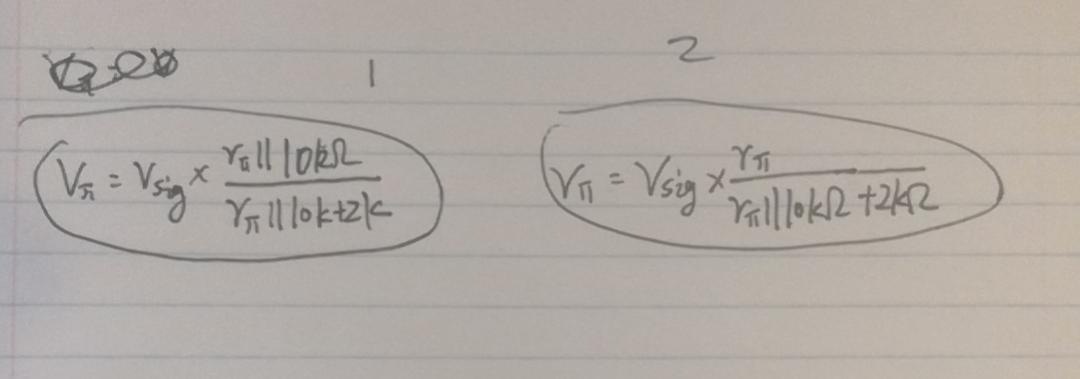 1 2
Vπ = Vsig × (rπ || 10kΩ) / (rπ || 10k+2k) Vπ = Vsig × rπ / (rπ || 10kΩ + 2kΩ)